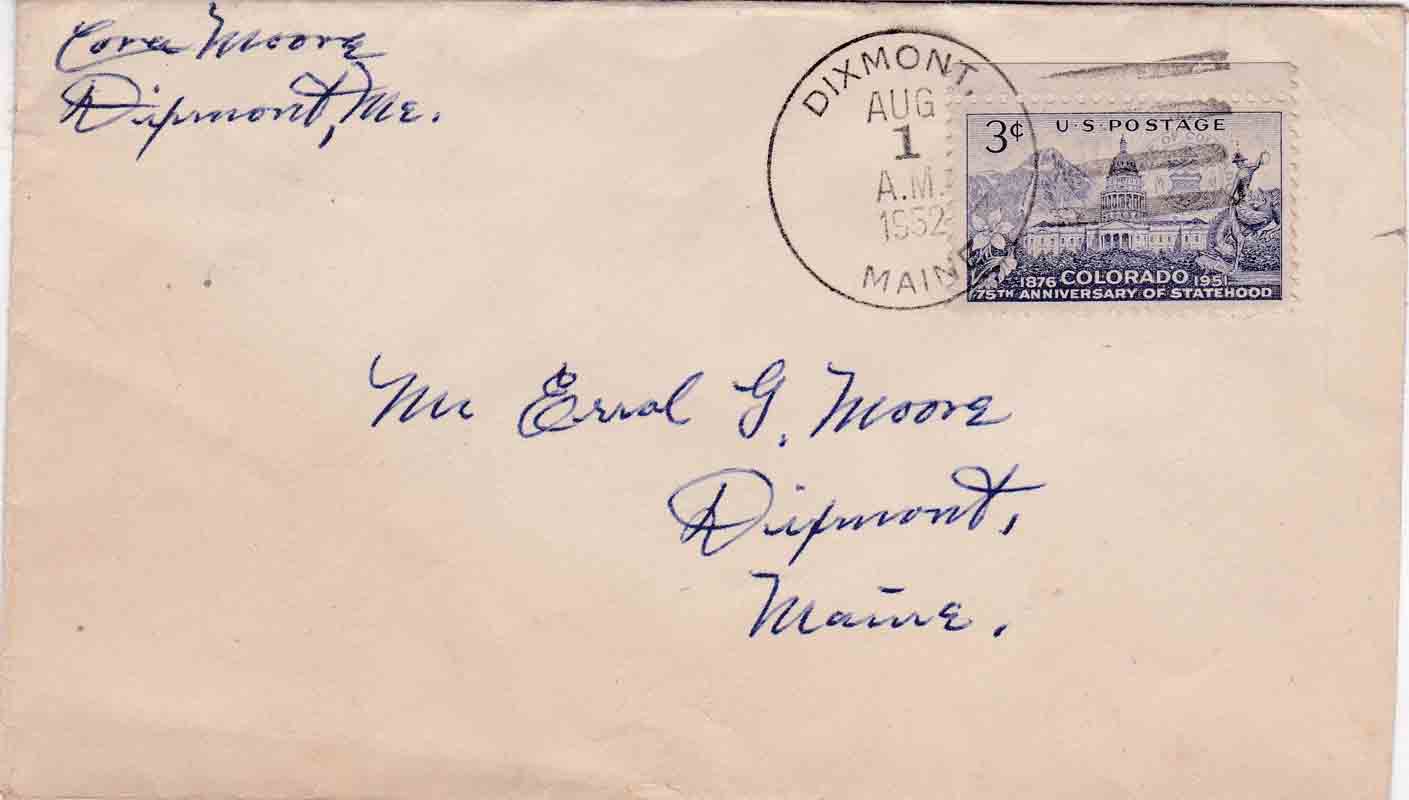 Cora Moore
Dixmont, Me.
DIXMONT,
AUG
1
A.M.
1952
MAINE
3¢ U·S·POSTAGE
1876 COLORADO 1951
75TH ANNIVERSARY OF STATEHOOD
Mr Errol G. Moore
Dixmont,
Maine.